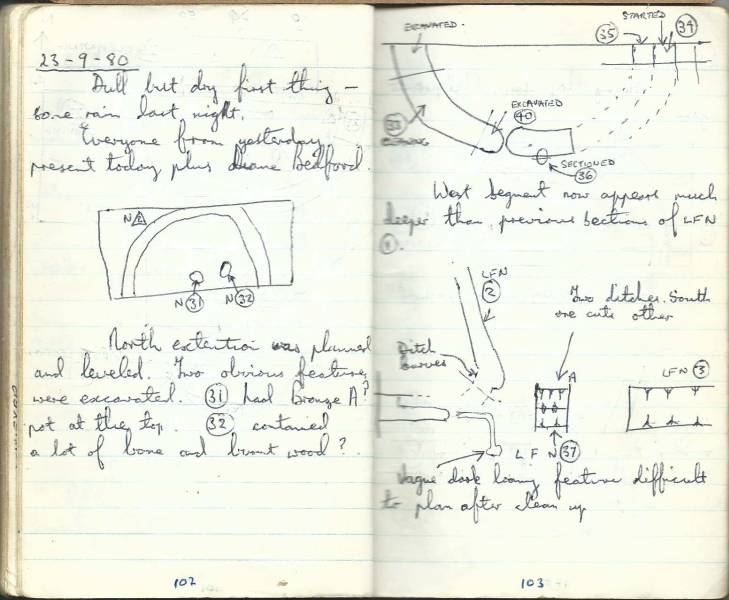 23-9-80
Dull but dry first thing –
some rain last night.
Everyone from yesterday
present today plus Duane Bedford.
N 2
N 31 N 32
North extention was planned
and leveled. Two obvious features
were excavated. 31 had Bronze A?
pot at the top. 32 contained
a lot of bone and burnt wood?
102
EXCAVATED.
STARTED
35 34
EXCAVATED
40
33
SECTIONED
36
West Segment now appears much
deeper than previous sections of LFN
LFN
2
Two ditches. South
one cuts other
Ditch
curves
A
LFN 3
LFN 37
Vague dark loamy feature difficult
to plan after clean up
103